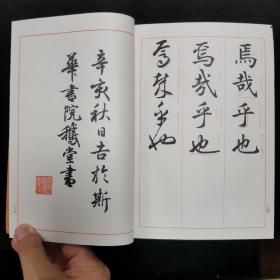 焉哉乎也
焉哉乎也
焉哉乎也
辛亥秋日吉於斯
華書院鵝堂書